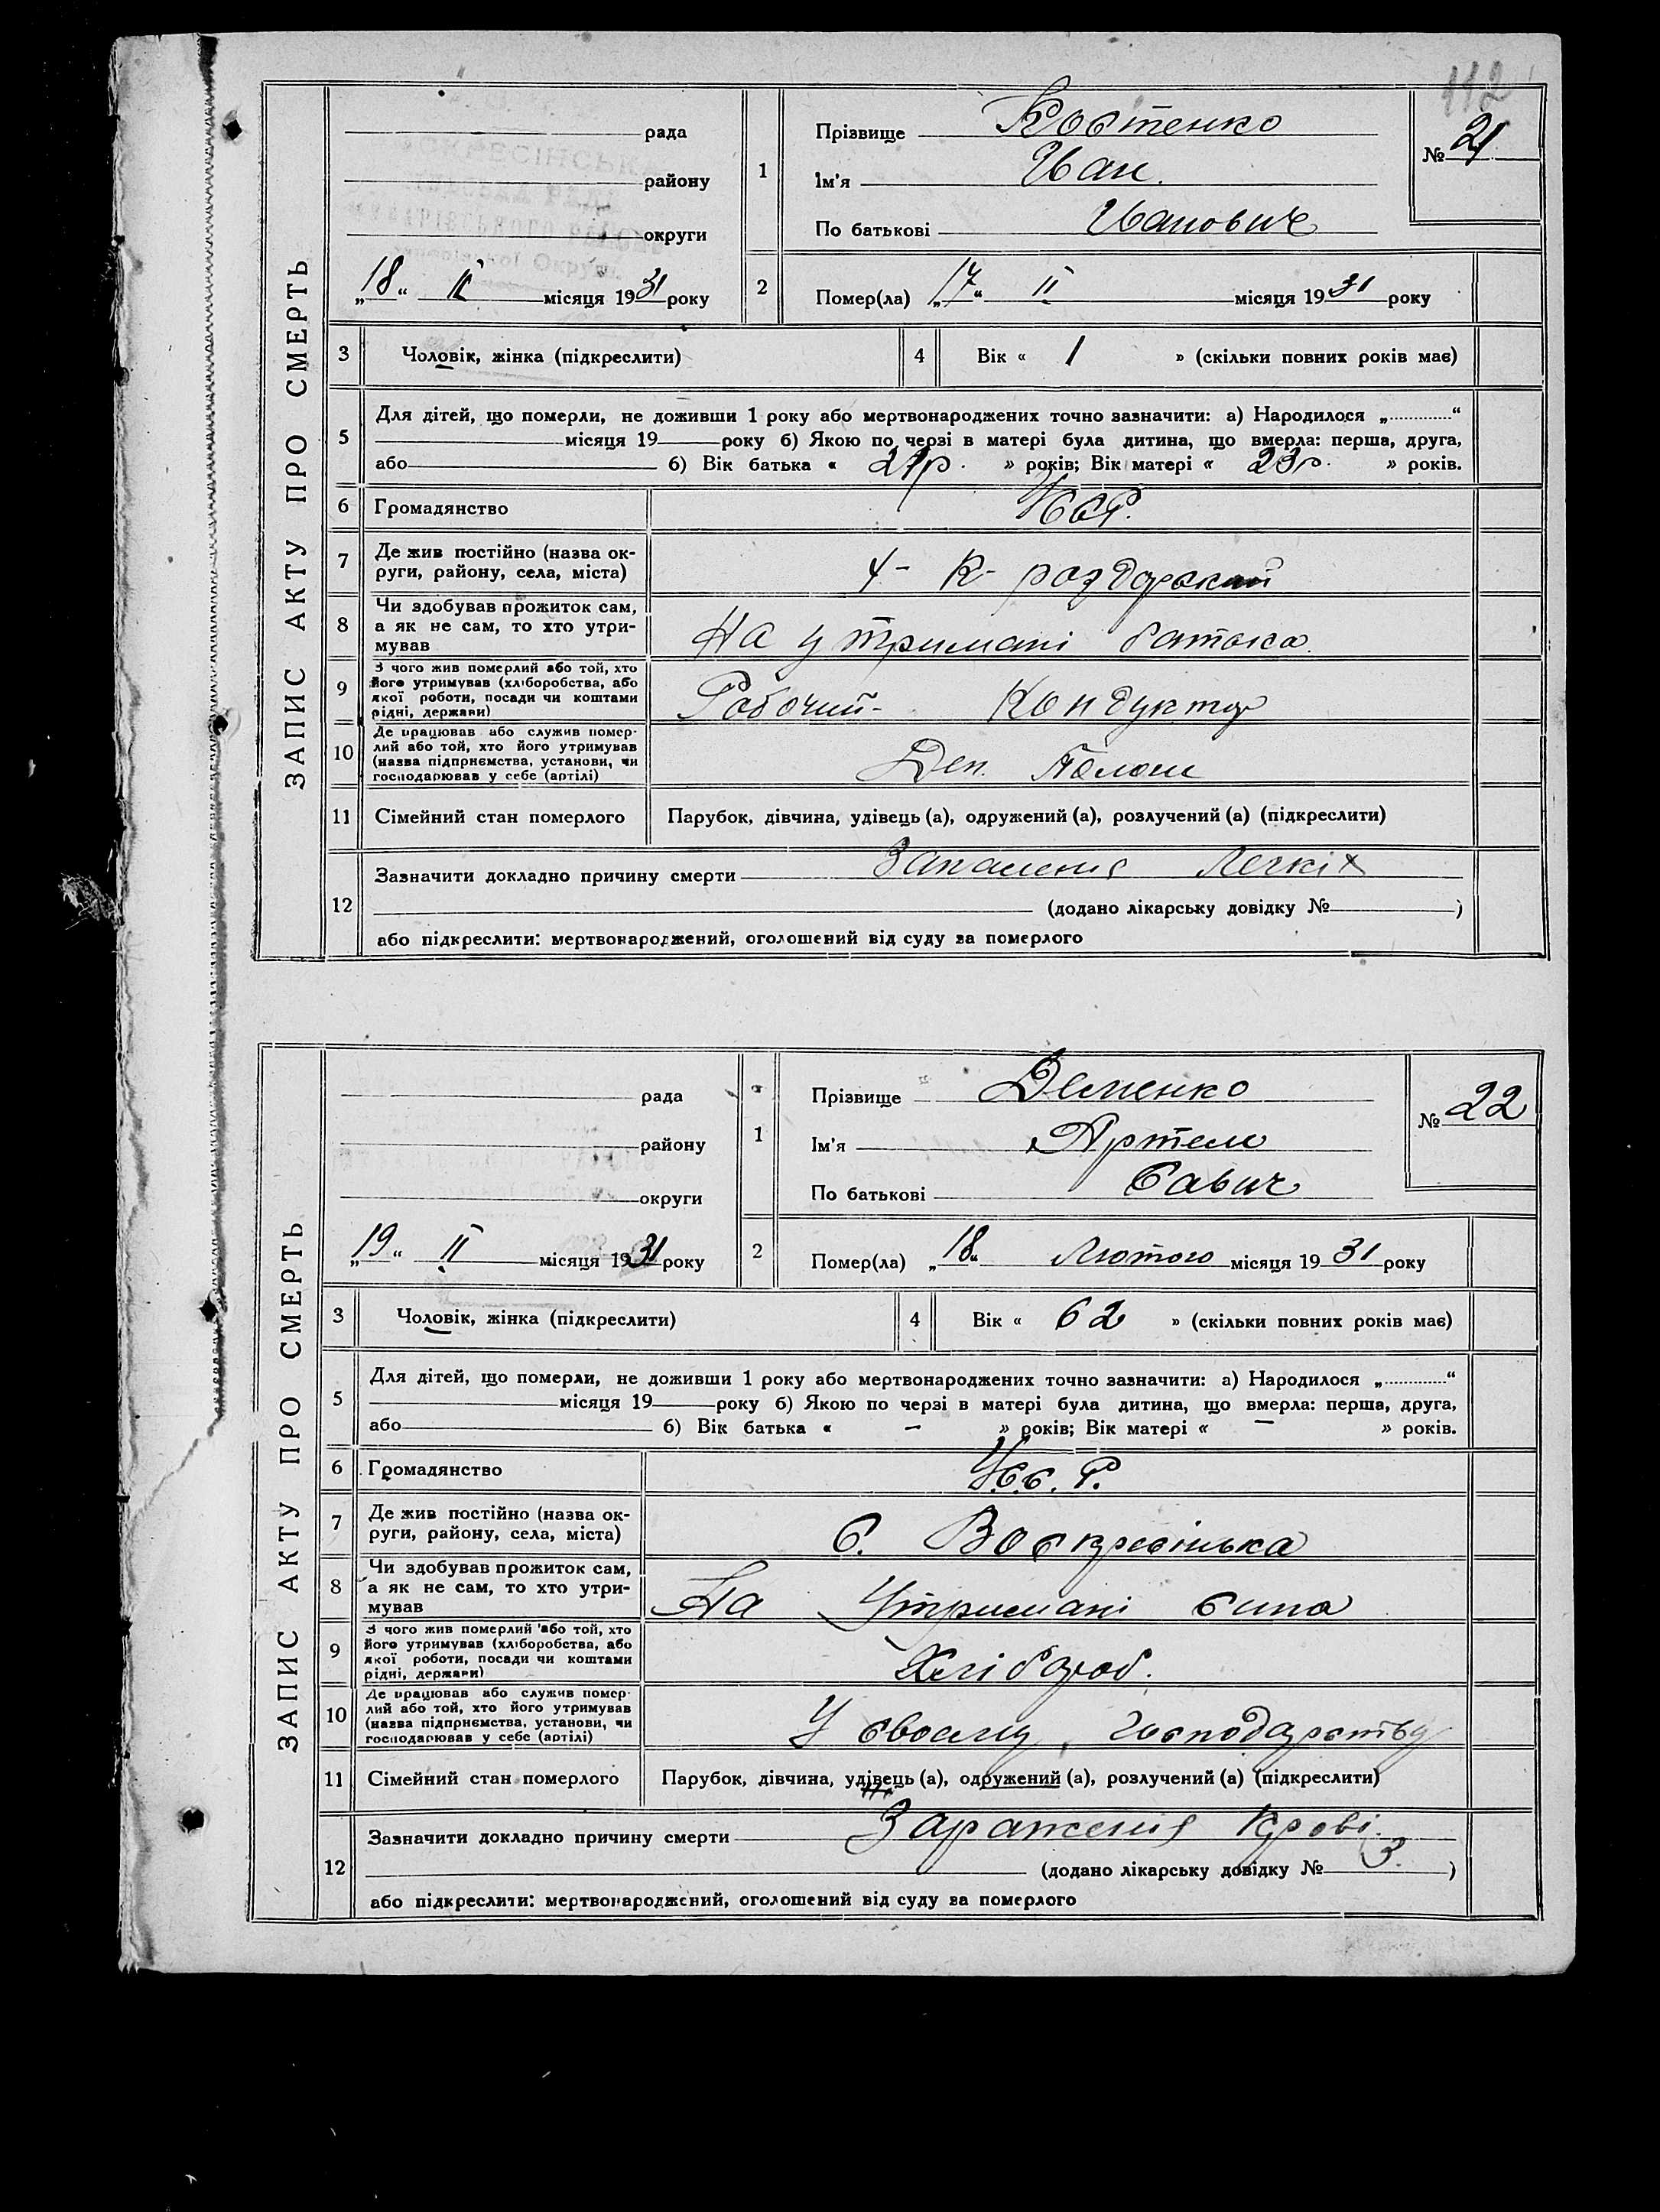 112
ЗАПИС АКТУ ПРО СМЕРТЬ
рада
району
округи
„18“ II місяця 1931 року
1
Прізвище Костенко
Ім'я Иван.
По батькові Иванович
№ 21
2
Помер(ла) „17“ II місяця 1931 року
3 Чоловік, жінка (підкреслити)
4 Вік « 1 » (скільки повних років має)
5 Для дітей, що померли, не доживши 1 року або мертвонароджених точно зазначити: а) Народилося „............“
місяця 19 року б) Якою по черзі в матері була дитина, що вмерла: перша, друга,
або б) Вік батька « р. » років; Вік матері « 23р. » років.
6 Громадянство УССР.
7 Де жив постійно (назва ок-
руги, району, села, міста)
8 Чи здобував прожиток сам,
а як не сам, то хто утри-
мував
На утримані батька.
9 З чого жив померлий або той, хто
його утримував (хліборобства, або
якої роботи, посади чи коштами
рідні, держави)
Робочий- Кондуктор
10 Де працював або служив помер-
лий або той, хто його утримував
(назва підприємства, установи, чи
господарював у себе (артілі)
11 Сімейний стан померлого Парубок, дівчина, удівець (а), одружений (а), розлучений (а) (підкреслити)
12 Зазначити докладно причину смерти Запаления Легких
(додано лікарську довідку № )
або підкреслити: мертвонароджений, оголошений від суду за померлого
ЗАПИС АКТУ ПРО СМЕРТЬ
рада
району
округи
„19“ II місяця 1931 року
1
Прізвище Деменко
Ім'я Артем
По батькові Савич
№ 22
2
Помер(ла) „18“ Лютого місяця 1931 року
3 Чоловік, жінка (підкреслити)
4 Вік « 62 » (скільки повних років має)
5 Для дітей, що померли, не доживши 1 року або мертвонароджених точно зазначити: а) Народилося „............“
місяця 19 року б) Якою по черзі в матері була дитина, що вмерла: перша, друга,
або б) Вік батька « – » років; Вік матері « – » років.
6 Громадянство У.С.С.Р.
7 Де жив постійно (назва ок-
руги, району, села, міста)
С. Воскресінька
8 Чи здобував прожиток сам,
а як не сам, то хто утри-
мував
На Утримані сина
9 З чого жив померлий або той, хто
його утримував (хліборобства, або
якої роботи, посади чи коштами
рідні, держави)
Хлібороб.
10 Де працював або служив помер-
лий або той, хто його утримував
(назва підприємства, установи, чи
господарював у себе (артілі)
У своему господарству
11 Сімейний стан померлого Парубок, дівчина, удівець (а), одружений (а), розлучений (а) (підкреслити)
12 Зазначити докладно причину смерти Заражения Крові.
(додано лікарську довідку № 3. )
або підкреслити: мертвонароджений, оголошений від суду за померлого